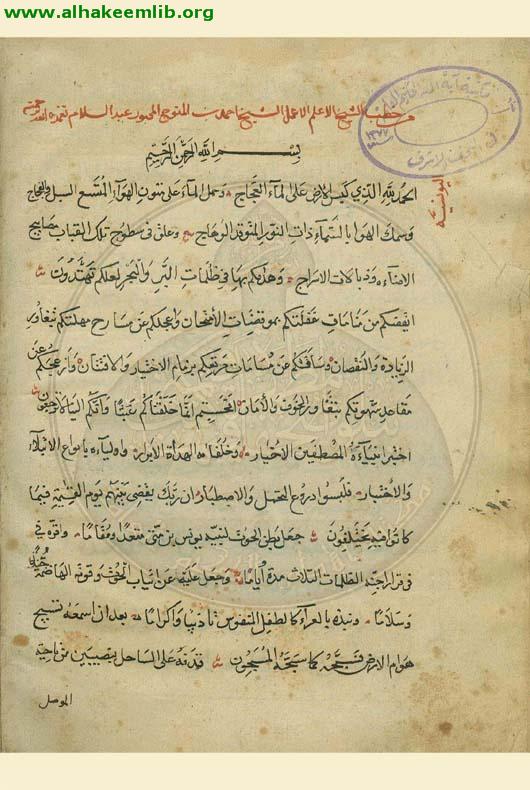 www.alhakeemlib.org
من خطب الشيخ الاعلم الاعمل الشيخ احمد بن المتوج المحبور عبد السلام تغمده الله برحمته
اليونسية
بسم الله الرحمن الرحيم
الحمد لله الذي كبس الارض على الماء العجاج وحمل الماء على متون الهواء المتسع السبل والفجاج
وسمك الهوا بالسماء ذات النور المتوقد الوهاج وعلق في سطوح تلك القباب مصابيح
وذبالات الاسراج وهداكم بها في ظلمات البر والبحر لعلكم تهتدون
من منامات غفلتكم بموقضات الأضحان واعجلكم عن مسارح مهلتكم
الزيادة والنقصان وساقكم عن بزمام الاختبار والافتتان وازعجكم عن
مقاعد شهوتكم والخوف والأمان افحسبتم انما خلقناكم عبثا وانكم الينا لا ترجعون
اختبر انبياءه المصطفين الأخيار وخلفاءه الهداة الأبرار واولياءه بانواع الابتلاء
والأختبار فلبسوا دروع التحمل والاصطبار ان ربك يقضي بينهم يوم القيمة فيما
كانوا فيه يختلفون جعل بطن الحوت لنبيه يونس بن متى مقعدا ومقاما واقره في
قرار اجنة الظلمات الثلاث مدة أياما وجعل عليه عن انياب الحوت وقوته الهاضمة
وسلاما ونبذه بالعراء كالطفل المنفوس تأديبا واكراما بعد ان اسمعه تسبيح
هوام الارض فسبحه كما سبحه المسبحون قذفه على الساحل بنصيبين من ناحية
الموصل